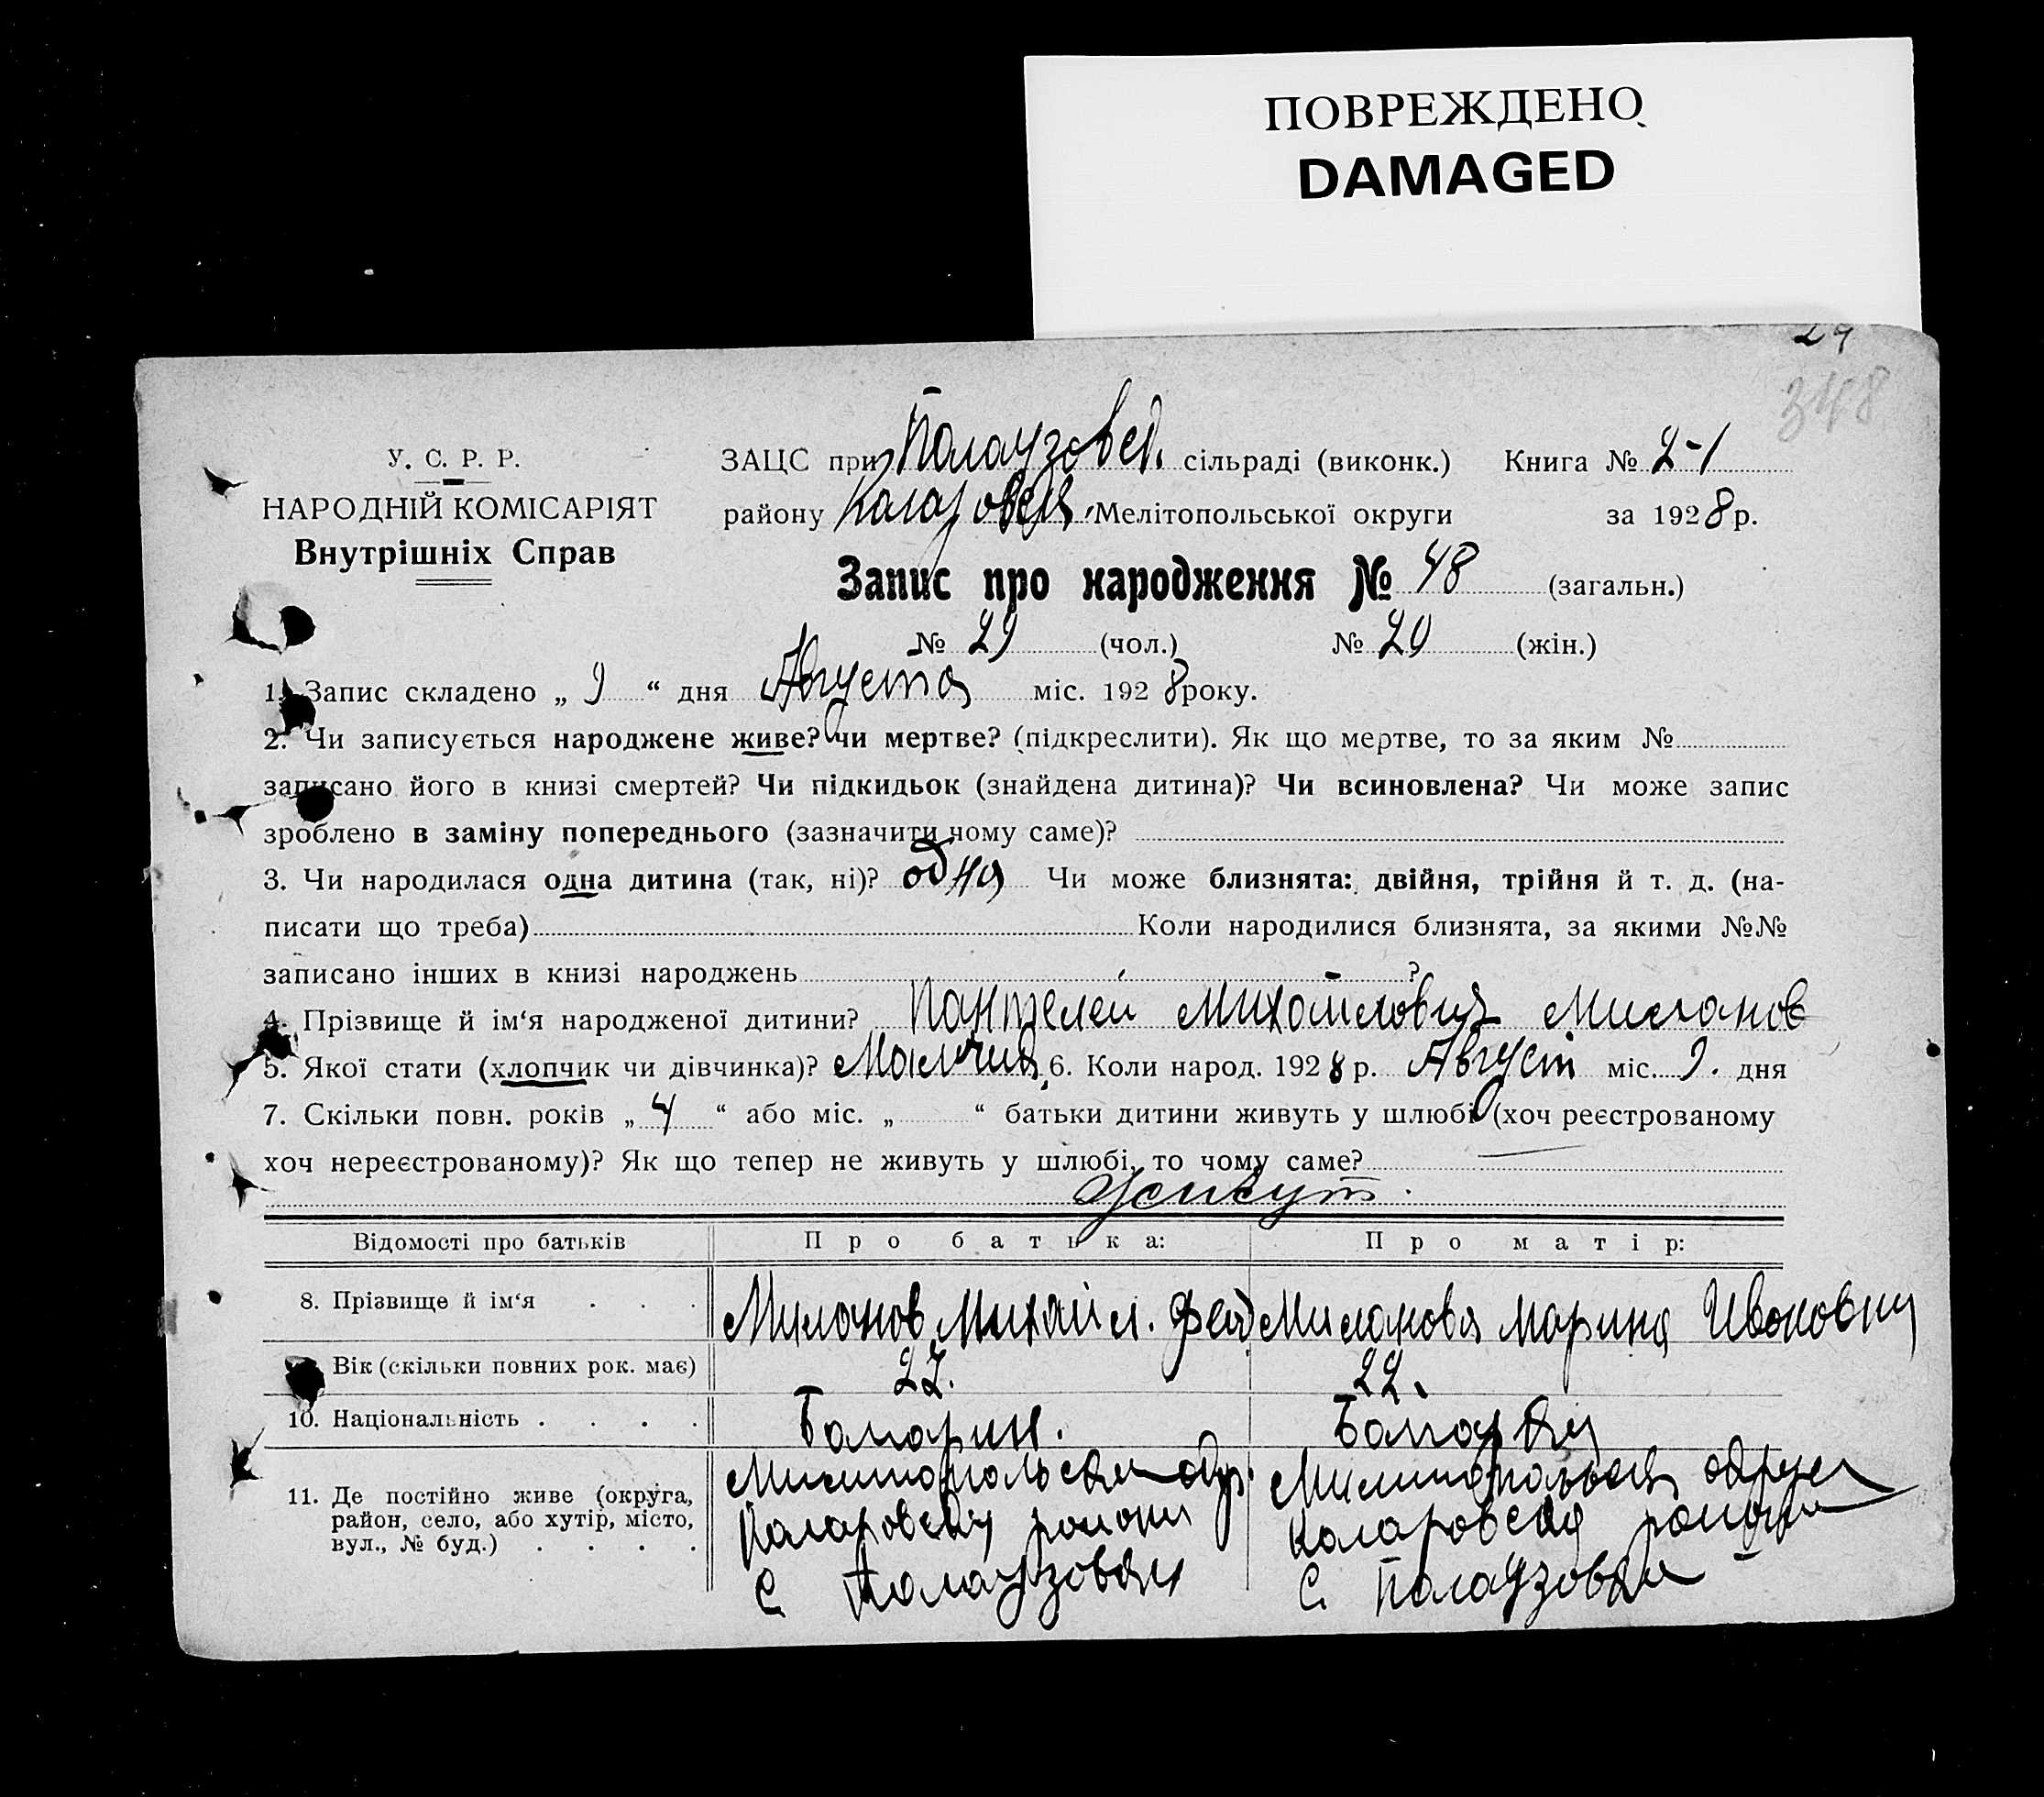 ПОВРЕЖДЕНО
DAMAGED
29
348
У. С. Р. Р.
НАРОДНІЙ КОМІСАРІЯТ
Внутрішніх Справ
ЗАЦС при Палаузовск. сільраді (виконк.) Книга № 2-1
району Коларовск. Мелітопольської округи за 1928 р.
Запис про народження № 48 (загальн.)
№ 29 (чол.) № 20 (жін.)
1. Запис складено „ 9 “ дня Августа міс. 1928 року.
2. Чи записується народжене живе? чи мертве? (підкреслити). Як що мертве, то за яким №
записано його в книзі смертей? Чи підкидьок (знайдена дитина)? Чи всиновлена? Чи може запис
зроблено в заміну попереднього (зазначити чому саме)?
3. Чи народилася одна дитина (так, ні)? одна Чи може близнята: двійня, трійня й т. д. (на-
писати що треба) Коли народилися близнята, за якими №№
записано інших в книзі народжень ?
4. Прізвище й ім‘я народженої дитини? Пантелей Михайлович Миланов
5. Якої стати (хлопчик чи дівчинка)? Мальчик 6. Коли народ. 1928 р. Август міс. 9. дня
7. Скільки повн. років „ 4 “ або міс. „ “ батьки дитини живуть у шлюбі (хоч реєстрованому
хоч нереєстрованому)? Як що тепер не живуть у шлюбі, то чому саме?
живут.
Відомості про батьків Про батька: Про матір:
8. Прізвище й ім‘я . . . Миланов Михаил. Фед Миланова Марина Ивановна
Вік (скільки повних рок. має) 27. 22.
10. Національність . . . . Болгарин. Болгарка
11. Де постійно живе (округа, район, село, або хутір, місто, вул., № буд.) . . . .
Милитопольская окр.
Коларовски района
С Палаузовки
Милитопольская округа
Коларовский района
С. Палаузовка